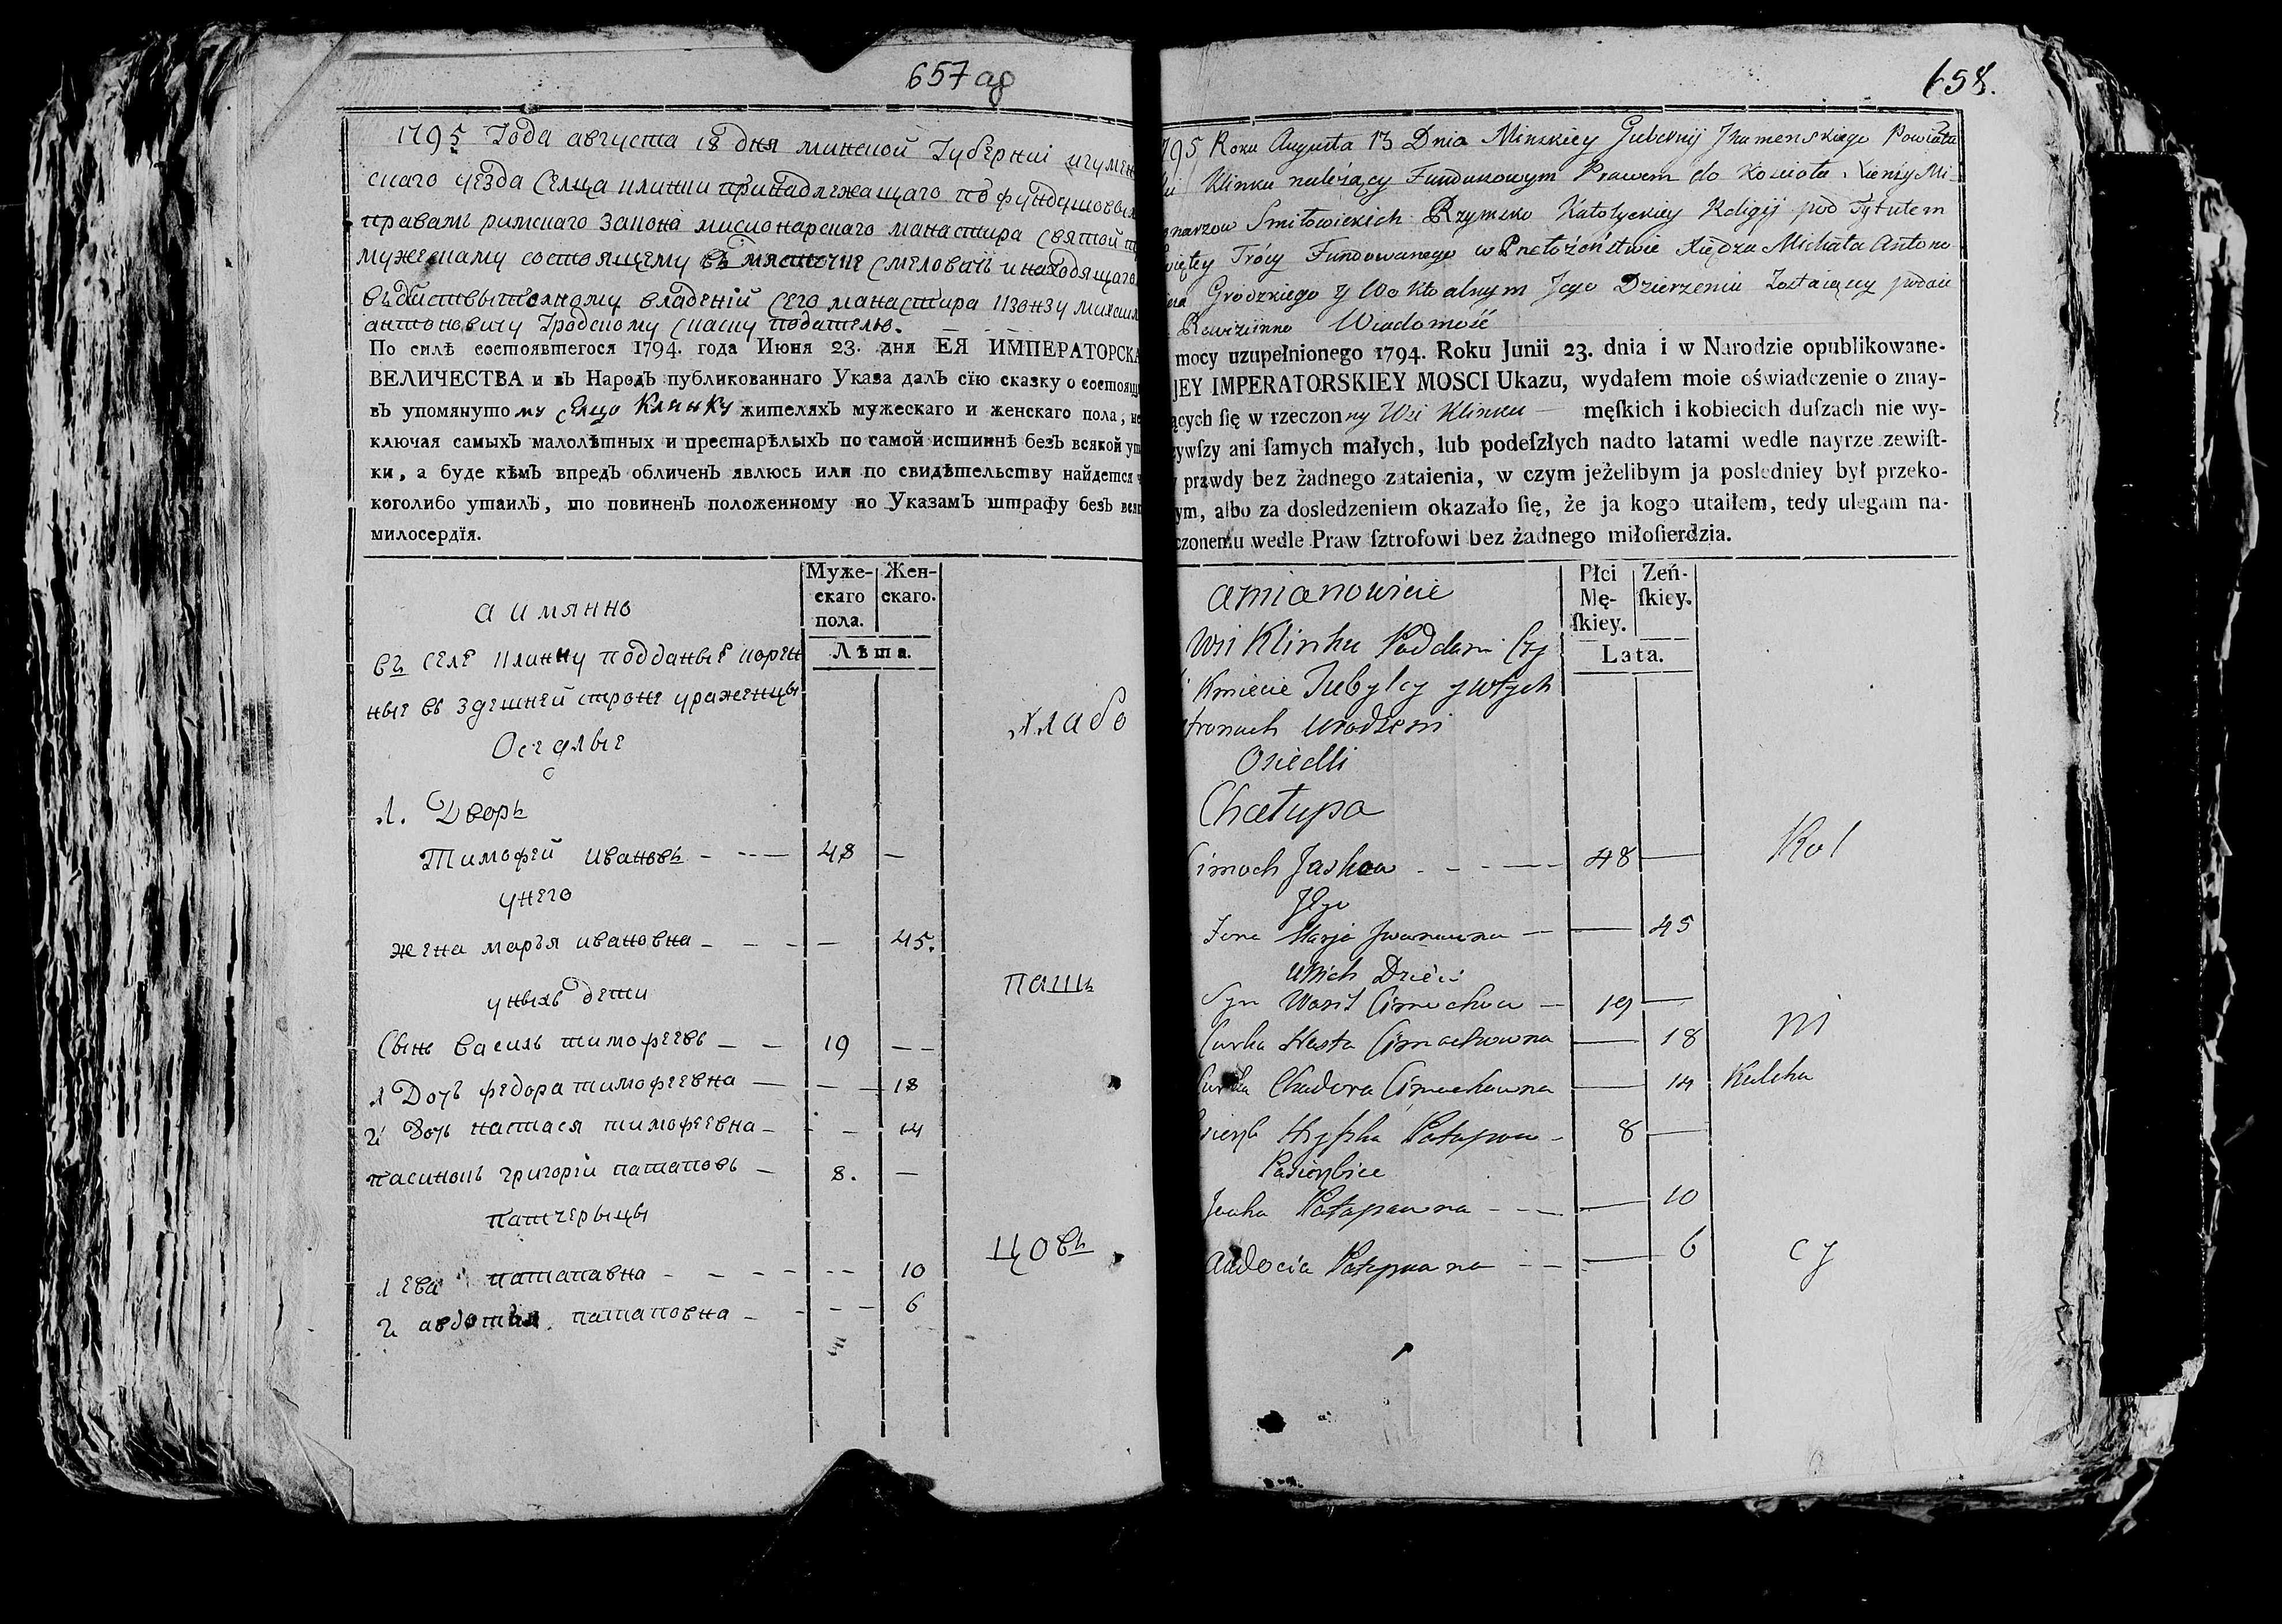 657 об
1795 Года августа 18 дня минской Губерниі игумен
скаго уезда Селца клинки принадлежащаго по фундушовым
правам римскаго закона мисионарскаго манастира святой
мужескаму состоящему въ мястечке Смеловичь инаходящаго
въдиствытелному владений сего манастира
антоновичу Гродскому скаску подателю.
По силѣ состоявшегося 1794. года Июня 23. дня ЕЯ ИМПЕРАТОРСКА
ВЕЛИЧЕСТВА и въ Народъ публикованнаго Указа далъ сїю сказку о состоящ
въ упомянутому селцо Клинку жителяхъ мужескаго и женскаго пола, не
ключая самыхъ малолѣтныхъ и престарѣлыхъ по самой истиннѣ безъ всякой ут
ки, а буде кѣмъ впредъ обличенъ явлюсь или по свидѣтельству найдется ч
коголибо утаилъ, то повиненъ положенному по Указамъ штрафу безъ вся
милосердїя.
Муже-
скаго
пола.
Жен-
скаго.
Лѣта.
а имянно
въ селе клинку подданые корен
ные въ здешней строне ураженцы
Оседлые
хлабо
1. Дворъ
Тимофей Ивановъ - - - - 48 —
унего
жена марья ивановна - - - — 45.
уныхъ дети
пашь
Сынъ василь тимофеевъ — — 19 — —
1 Дочь федора тимофеевна — — 18
2 Дочь настася тимофеевна — — 14
пасинокъ григорій патаповъ — 8. —
патчерыцы
цовъ
1 Ева патапавна - - - - - - 10
2 авдотия патаповна - - - — 6
658.
795 Roku Augusta 13 Dnia Minskiey Gubernij Ihumenskiego Powiatu
Klinku należący Fundunowym Prawem do Kościoła Xięży Mi-
onarzow Smiłowickich Rzymsko Katolyckiey Religij pod Tytułem
więtey Trócy Fundowanego w Prełożeństwie Xiędza Michała Antono
Grodzkiego y Wo Aktualnym Jego Dzierżeniu Zostaiący podaie
Rewizinno Wiadomość
mocy uzupełnionego 1794. Roku Junii 23. dnia i w Narodzie opublikowane-
JEY IMPERATORSKIEY MOSCI Ukazu, wydałem moie oświadczenie o znay-
ących się w rzeczonny Wsi Klinku — męſkich i kobiecich duſzach nie wy-
zywſzy ani ſamych małych, lub podeſzłych nadto latami wedle nayrze zewiſt-
prawdy bez żadnego zataienia, w czym jeżelibym ja posledniey był przeko-
ym, albo za dosledzeniem okazało ſię, że ja kogo utaiłem, tedy ulegam na-
czonemu wedle Praw ſztrofowi bez żadnego miłoſierdzia.
Płci
Mę-
ſkiey.
Zeń-
ſkiey.
Lata.
amianowicie
Wsi Klinku Poddani Czy
Kmiecie Tubylcy y wtych
stronach urodzeni
Osiedli
Chałupa
imoch Jaskow - - - — 48 —
Kol
Jego
Zona Marja Iwanowna — — 45
Unich Dzieci
Syn Wasil Cimochow — 19 —
ni
Curka Nasta Cimochowna — 18
Curka Chadora Cimochowna — 14
Kulcha
sierzb Hryſzka Potapow - 8 —
Pasierzbice
Jewka Potapowna - - - — 10
Audocia Potapowna — — 6
cy